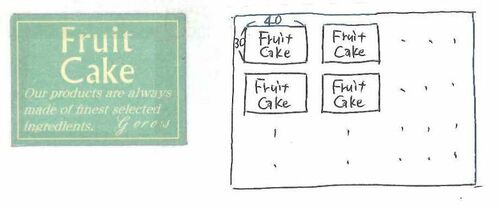 Fruit
Cake
Our products are always
made of finest selected
ingredients. Goros
40
30
Fruit
Cake
Fruit
Cake
Fruit
Cake
Fruit
Cake